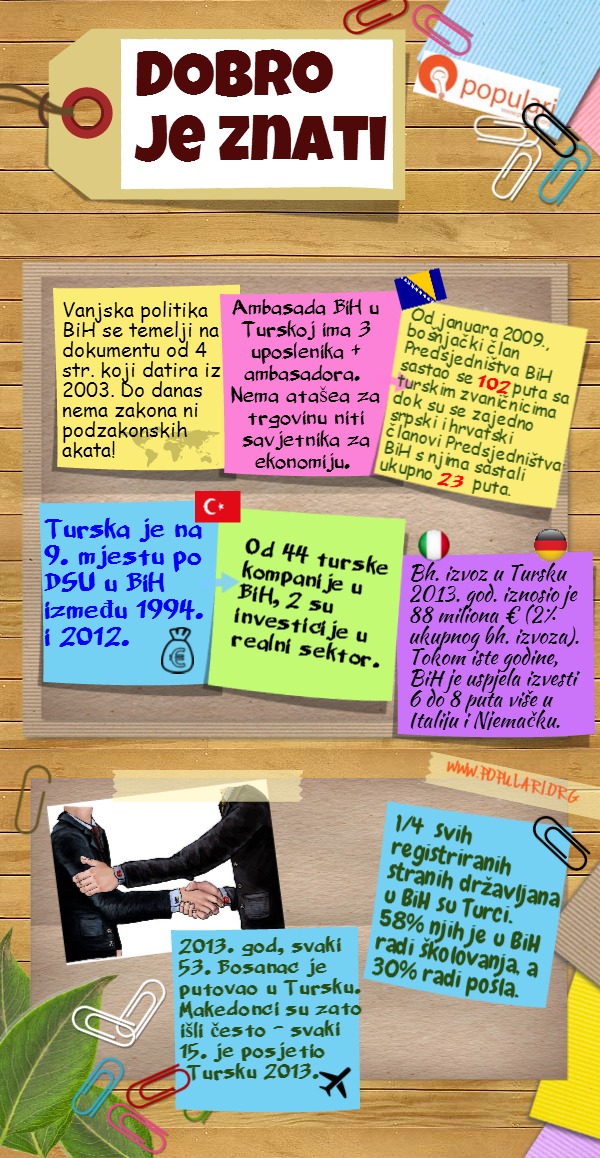 DOBRO
JE ZNATI
populari
Vanjska politika
BiH se temelji na
dokumentu od 4
str. koji datira iz
2003. Do danas
nema zakona ni
podzakonskih
akata!
Ambasada BiH u
Turskoj ima 3
uposlenika +
ambasadora.
Nema atašea za
trgovinu niti
savjetnika za
ekonomiju.
Od januara 2009.,
bošnjački član
Predsjedništva BiH
sastao se 102 puta sa
turskim zvaničnicima
dok su se zajedno
srpski i hrvatski
članovi Predsjedništva
BiH s njima sastali
ukupno 23 puta.
Turska je na
9. mjestu po
DSU u BiH
između 1994.
i 2012.
Od 44 turske
kompanije u
BiH, 2 su
investicije u
realni sektor.
Bh. izvoz u Tursku
2013. god. iznosio je
88 miliona € (2%
ukupnog bh. izvoza).
Tokom iste godine,
BiH je uspjela izvesti
6 do 8 puta više u
Italiju i Njemačku.
WWW.POPULARI.ORG
1/4 svih
registriranih
stranih državljana
u BiH su Turci.
58% njih je u BiH
radi školovanja, a
30% radi posla.
2013. god, svaki
53. Bosanac je
putovao u Tursku.
Makedonci su zato
išli često - svaki
15. je posjetio
Tursku 2013.